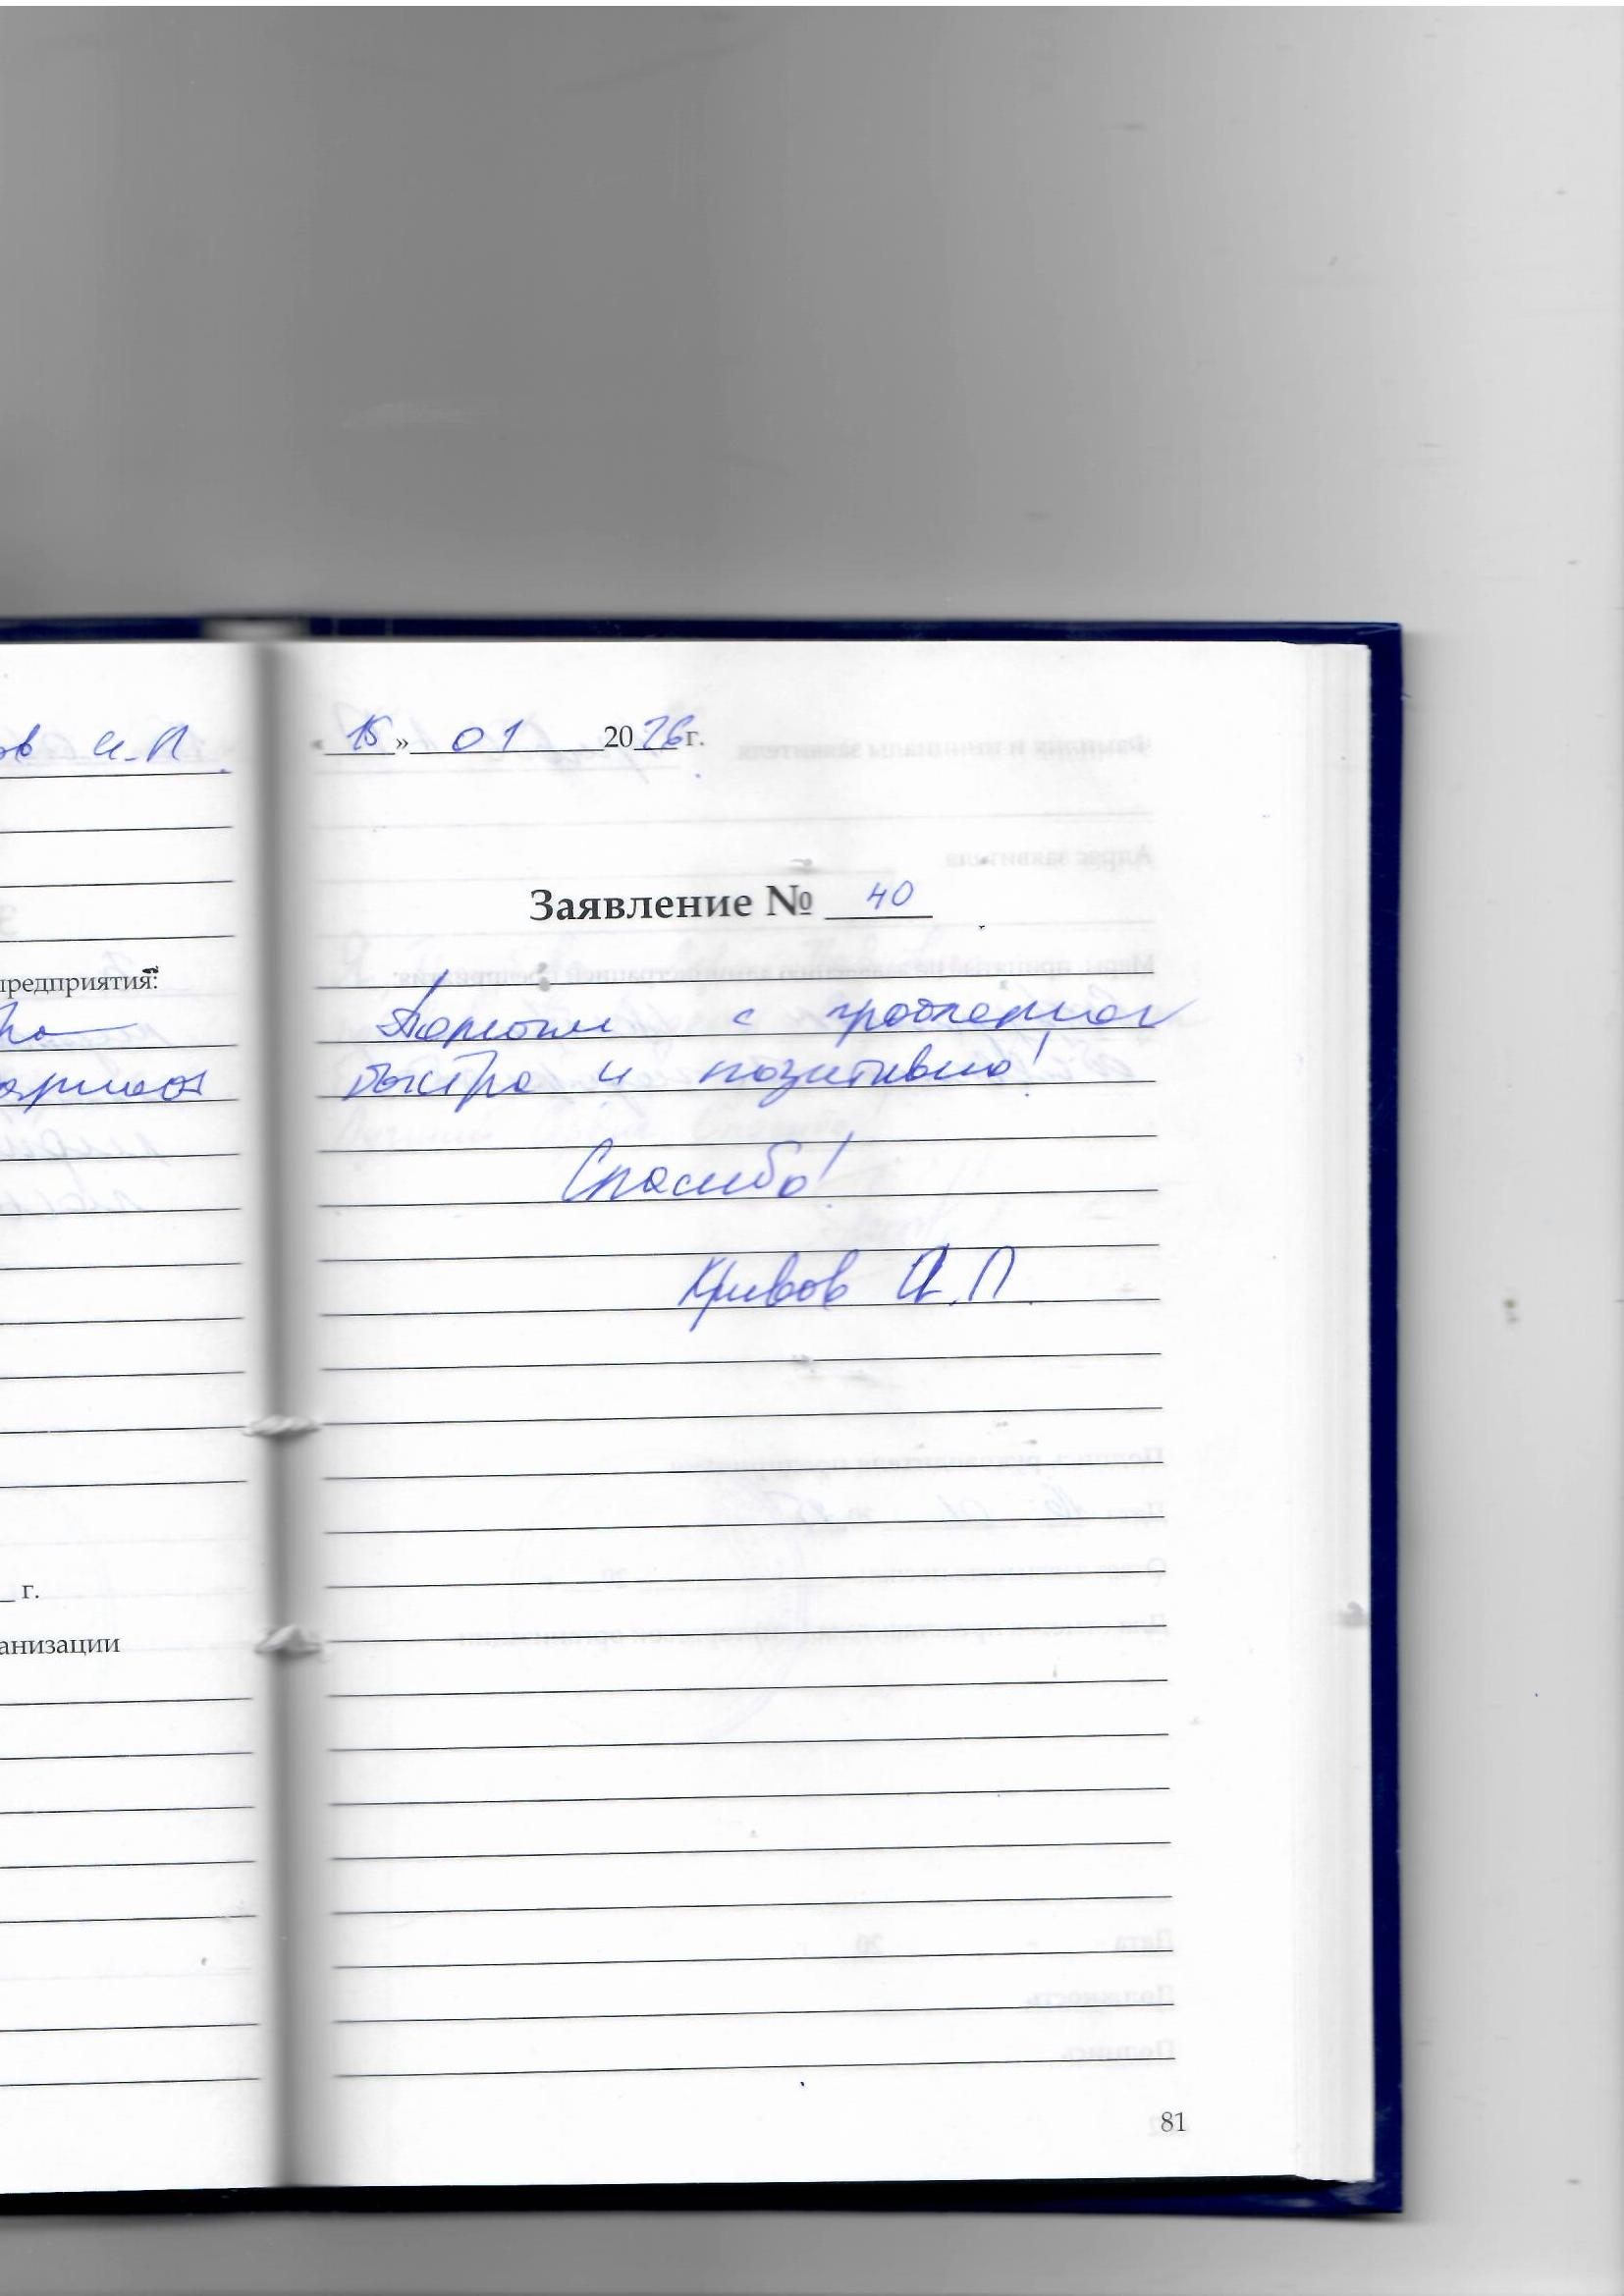 ов И.П.
предприятия:
г.
анизации
«15» 01 2026 г.
Заявление № 40
Помогли с проблемой
быстро и позитивно!
Спасибо!
Кривов И.П.
81